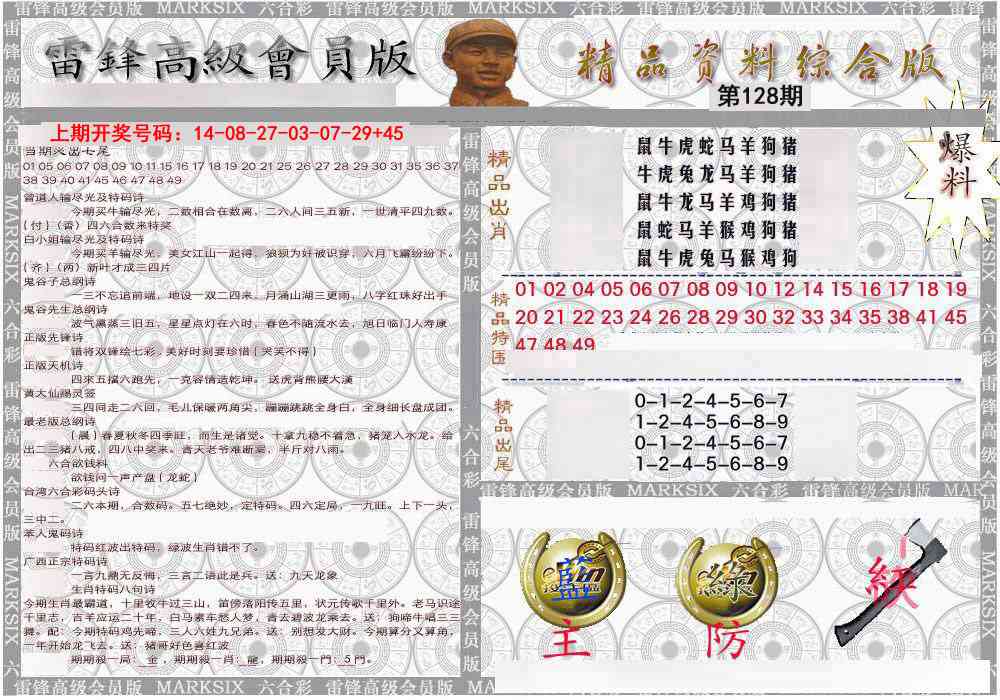 雷锋高级会员版 MARKSIX 六合彩 雷锋高级会员版 MARKSIX 六合彩 雷锋高级会员版 MARKSIX 六合彩
雷鋒高級會員版
精品资料综合版
第128期
爆料
上期开奖号码：14-08-27-03-07-29+45
01 05 06 07 08 09 10 11 15 16 17 18 19 20 21 25 26 27 28 29 30 31 35 36 37
38 39 40 41 45 46 47 48 49
曾道人输尽光及特码诗
今期买牛输尽光，二数相合在数离，二六人间三五新，一世清平四九数。
(付)（香）四六合数来特奖
白小姐输尽光及特码诗
今期买羊输尽光，美女江山一起得，狼狈为奸被识穿，六月飞霜纷纷下。
(齐)（两）新叶才成三四片
鬼谷子总纲诗
一三不忘追前端，地设一双二四来，月涌山湖三更雨，八字红珠好出手
鬼谷先生总纲诗
波气熏蒸三旧五，星星点灯在六时，春色不随流水去，旭日临门人寿康
正版先锋诗
错将双锋绘七彩，美好时刻要珍惜(哭笑不得)
正版天机诗
四来五搵六跑先，一克容情造乾坤。 送虎背熊腰大漢
黄大仙赐灵签
三四同走二六回，毛儿保暖两角尖，蹦蹦跳跳全身白，全身细长盘成团。
最老版总纲诗
(晨)春夏秋冬四季旺，而生是诸觉。十拿九稳不着急，猪笼入水龙。给
出二三猪八戒，四八中奖来。青天老爷难断案，半斤对八雨。
六合欲钱料
欲钱问一声产盘(龙蛇)
台湾六合彩码头诗
二六本期，合数码。五七绝妙，定特码。四六定局，一九旺。上下一头，
三中二。
本人鬼码诗
特码红波出特码，绿波生肖错不了。
广西正宗特码诗
一言九鼎无反悔，三言二语此是兵。送：九天龙象
生肖特码八句诗
今期生肖最霸道，十里牧牛过三山，笛傍落阳传五里，状元传歌千里外。老马识途
千里志，吉羊应运二十年，白马素车愁人梦，青去碧波龙乘去。送：狗啼牛唱三三
舞。配：今期特码鸡先啼，三人六姓九兄弟。送：别想发大财。今期算分又算角，
一年开始龙飞去。送：猪哥好色喜红波
期期殺一局：金，期期殺一肖：龍，期期殺一門：5門。
精品出肖
鼠牛虎蛇马羊狗猪
牛虎兔龙马羊狗猪
鼠牛龙马羊鸡狗猪
鼠蛇马羊猴鸡狗猪
鼠牛虎兔马猴鸡狗
精品特围
01 02 04 05 06 07 08 09 10 12 14 15 16 17 18 19
20 21 22 23 24 26 28 29 30 32 33 34 35 38 41 45
47 48 49
精品出尾
0-1-2-4-5-6-7
1-2-4-5-6-8-9
0-1-2-4-5-6-7
1-2-4-5-6-8-9
雷锋高级会员版 MARKSIX 六合彩 雷锋高级会员版 MARK
藍
綠
紅
主
防
雷锋高级会员版 MARKSIX 六合彩 雷锋高级会员版 MARKSIX 六合彩 雷锋高级会员版 MARKSIX 六合彩